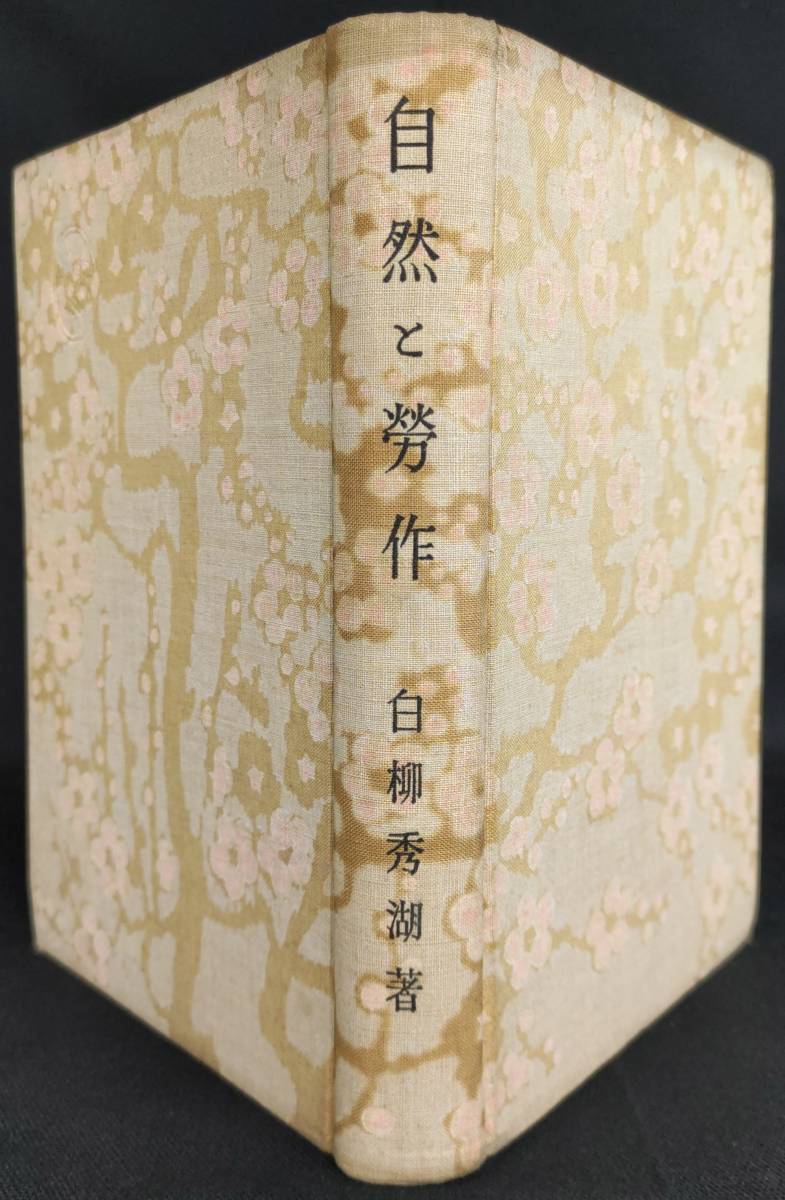 自然と勞作
白柳秀湖著